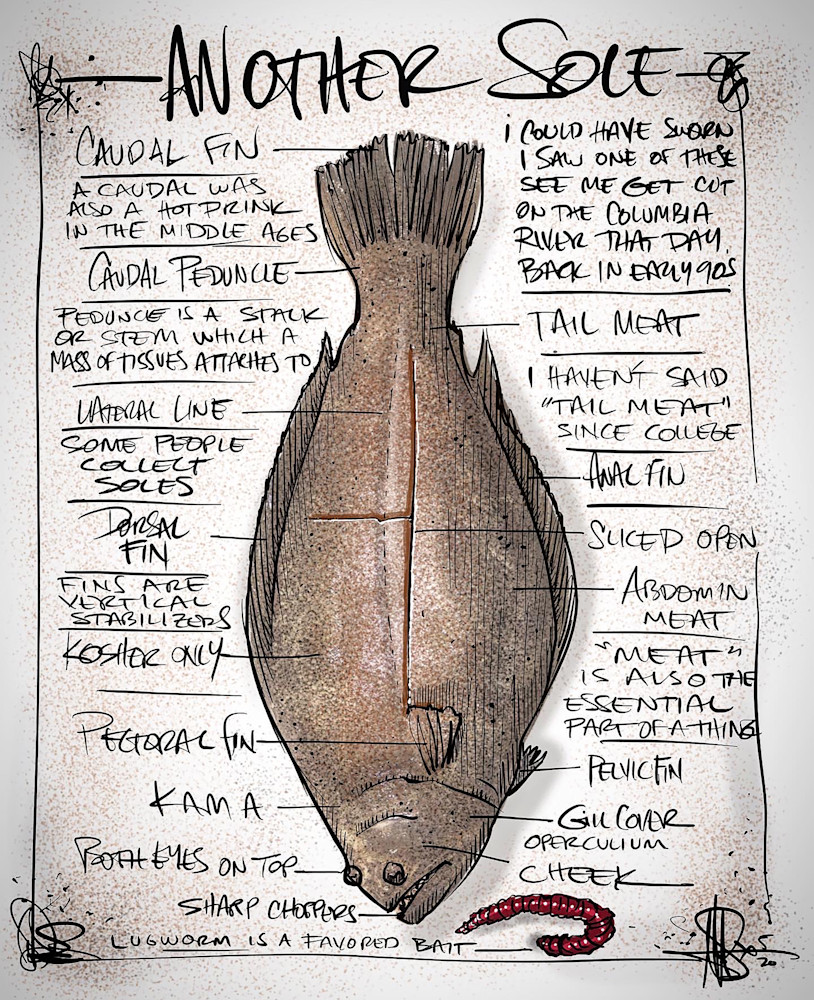 ANOTHER SOLE
CAUDAL FIN
A CAUDAL WAS
ALSO A HOT DRINK
IN THE MIDDLE AGES
CAUDAL PEDUNCLE
PEDUNCLE IS A STALK
OR STEM WHICH A
MASS OF TISSUES ATTACHES TO
LATERAL LINE
SOME PEOPLE
COLLECT
SOLES
DORSAL
FIN
FINS ARE
VERTICAL
STABILIZERS
KOSHER ONLY
PECTORAL FIN
KAMA
BOTH EYES ON TOP
SHARP CHOPPERS
LUGWORM IS A FAVORED BAIT
I COULD HAVE SWORN
I SAW ONE OF THESE
SEE ME GET CUT
ON THE COLUMBIA
RIVER THAT DAY
BACK IN EARLY 90S
TAIL MEAT
I HAVEN'T SAID
"TAIL MEAT"
SINCE COLLEGE
ANAL FIN
SLICED OPEN
ABDOMIN
MEAT
"MEAT"
IS ALSO THE
ESSENTIAL
PART OF A THING
PELVIC FIN
GILL COVER
OPERCULIUM
CHEEK
20